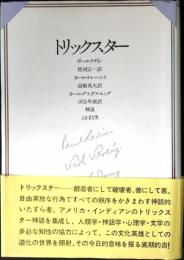 トリックスター
ポール・ラディン
カール・ケレーニイ
高橋英夫訳
カール・グスタフ・ユング
河合隼雄訳
解説
山口昌男
Paul Radin
トリックスター――創造者にして破壊者、善にして悪。
自由奔放な行為ですべての秩序をかきまわす神話的
いたずら者。アメリカ・インディアンのトリックス
ター神話を集成し、人類学・神話学・心理学・文学の
多方な知性の協力によって、この文化英雄としての
道化の世界を照射、その今日的意味を探る画期的書!